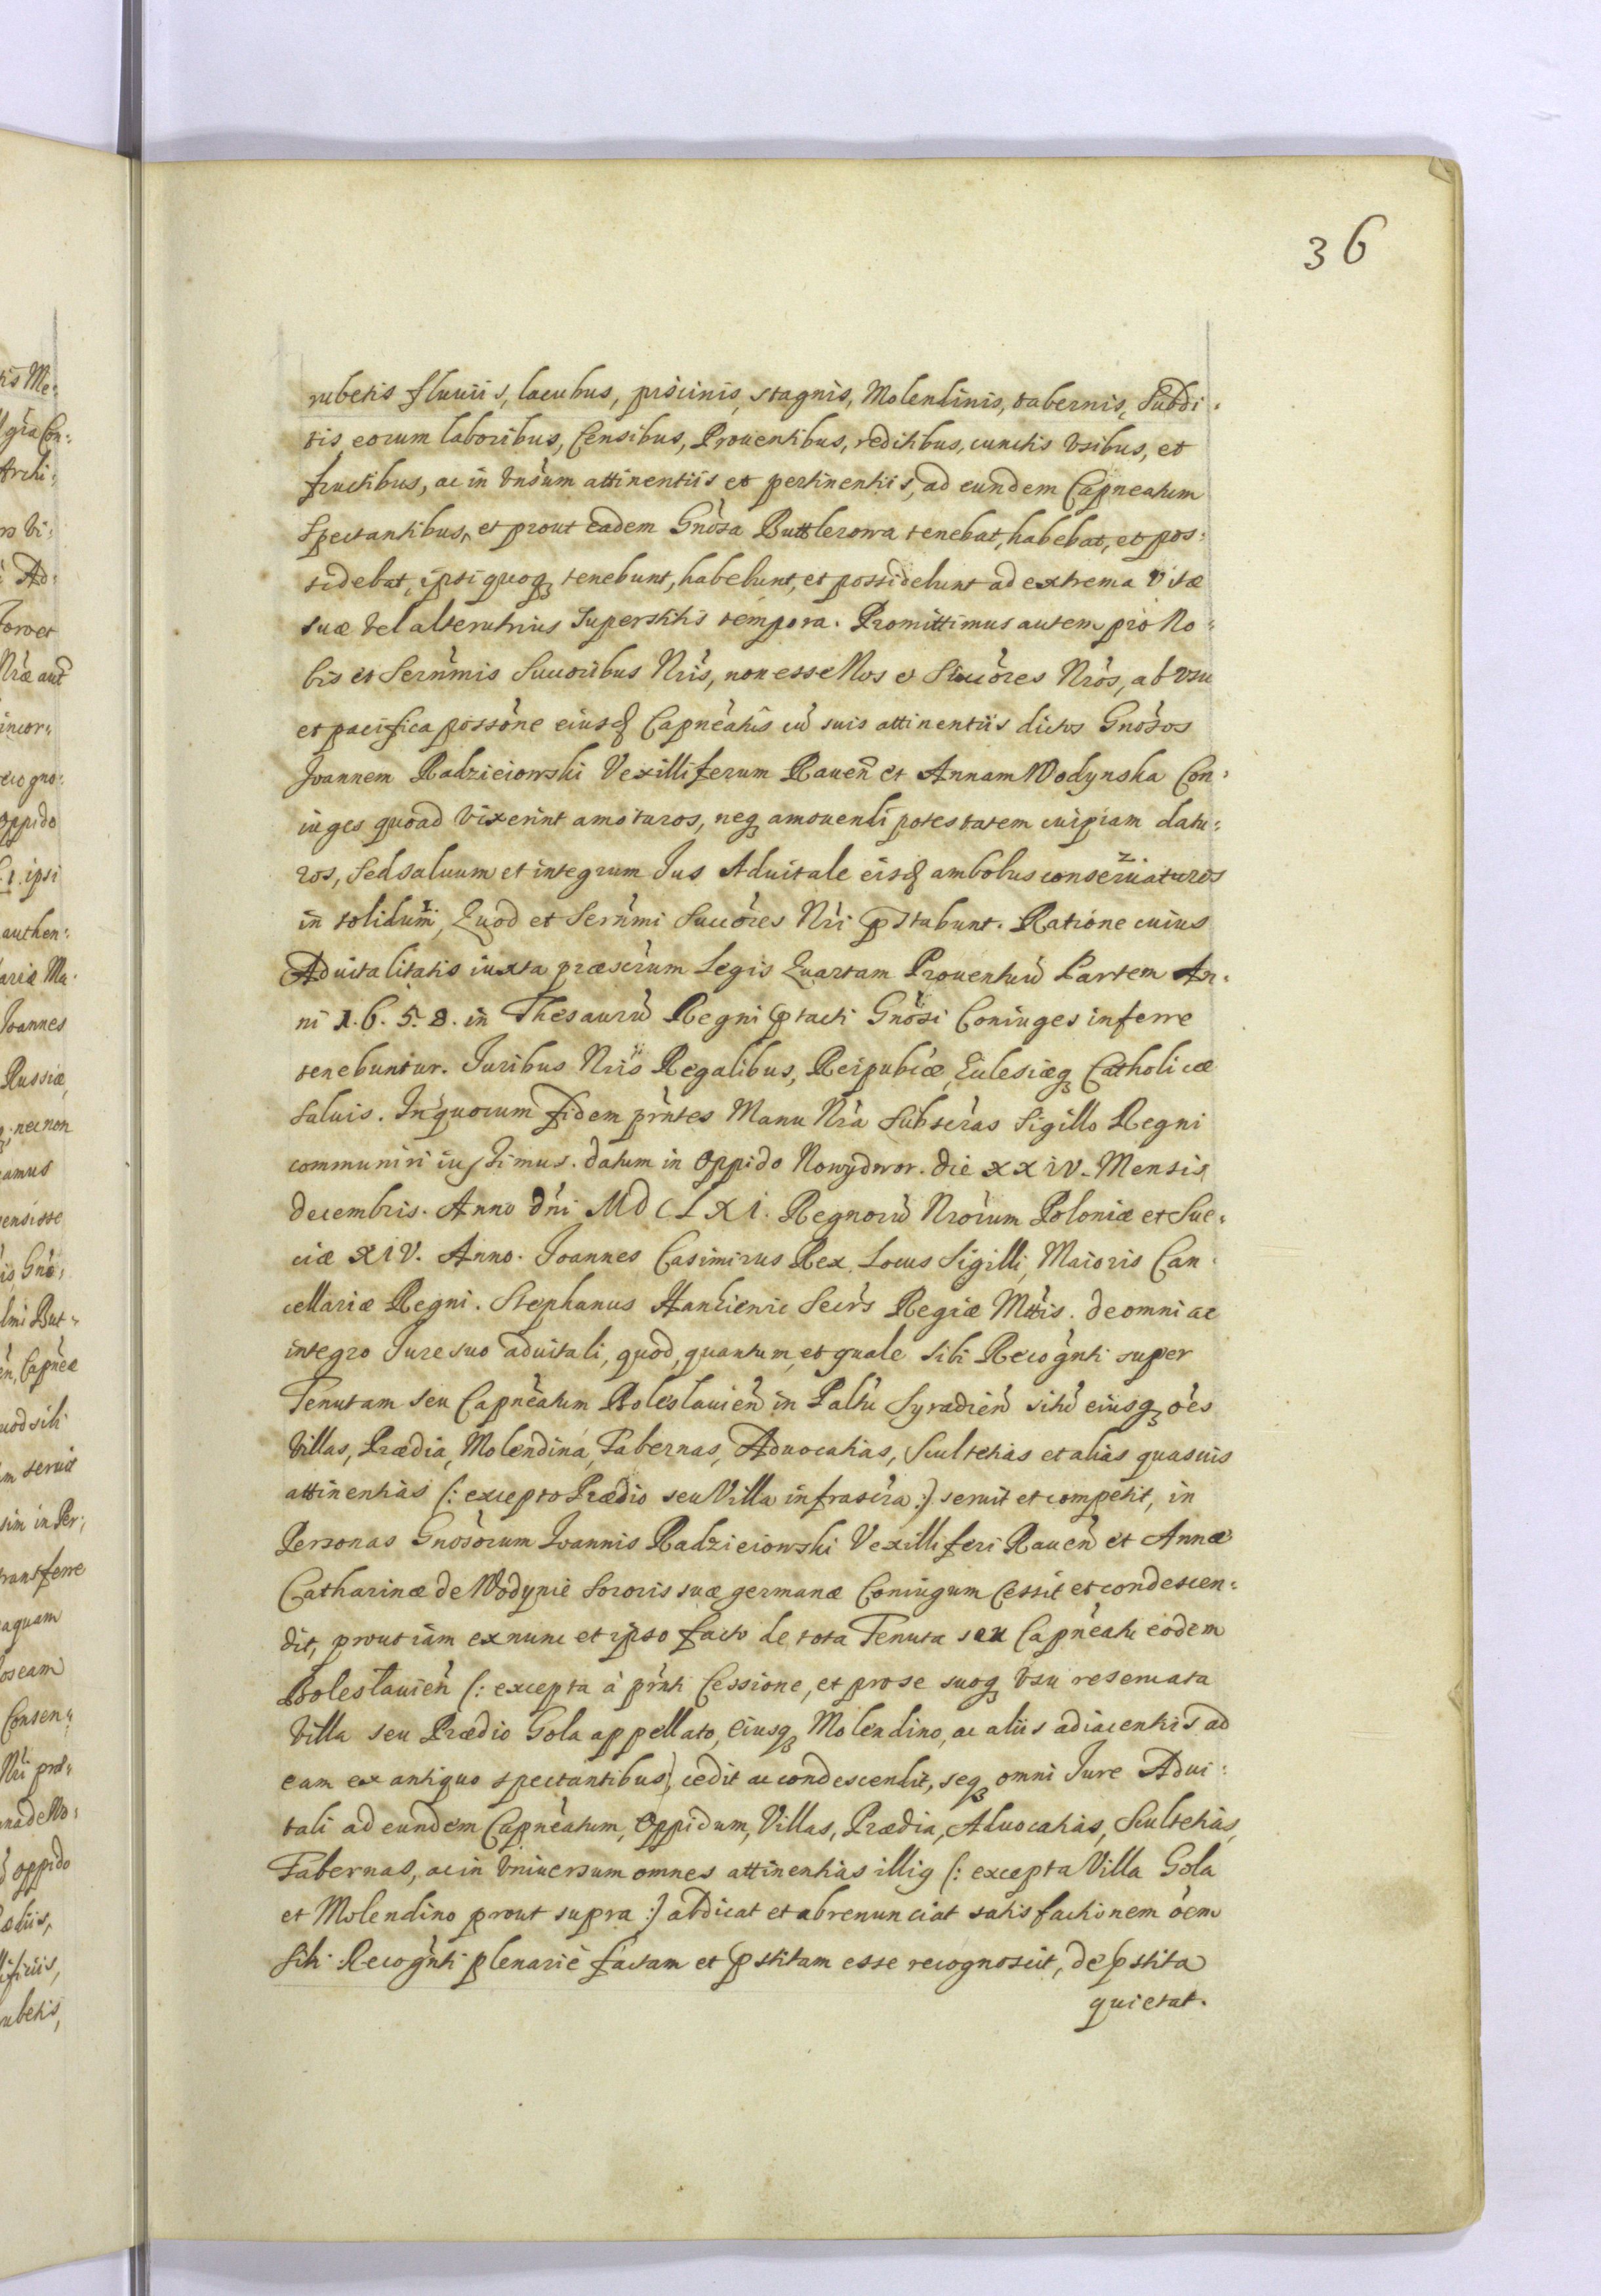 36
rubetis fluuiis, lacubus, piscinis, stagnis, Molendinis, tabernis, Subdi:
tis, eorum laboribus, Censibus, Prouentibus, reditibus, cunctis vsibus, et
fructibus, ac in Vnsum attinentiis et pertinentiis, ad eundem Capneatum
Spectantibus, et prout eadem Gnosa Buttlerowa tenebat, habebat, et pos:
sidebat, ipsi quoq tenebunt, habebunt, et possidebunt ad extrema vitæ
suæ vel alterutrius superstitis tempora. Promittimus autem pro No:
bis et Sernmis Succoribus Nris, non esse Nos et Succores Nros, ab vsu
et pacifica possone eiusd Capneatus cu suis attinentiis dictos Gnosos
Joannem Radzieiowski Vexilliferum Rauen et Annam Wodynska Con:
iuges quoad vixerint amoturos, neq amouendi potestatem cuipiam datu:
ros, sed saluum et integrum Jus Aduitale eisd ambobus conseruaturos
in solidum, Quod et Sernmi Succores Nri pstabunt. Ratione cuius
Aduitalitatis iuxta præscrum Legis Quartam Prouentuu Partem An:
ni 1.6.5.8. in Thesauru Regni ptacti Gnosi Coniuges inferre
tenebuntur. Juribus Nris Regalibus, Reipubcæ, Eclesiæq Catholicæ
saluis. In quorum fidem prntes Manu Nra Subscras Sigillo Regni
communiri iussimus. datum in Oppido Nowydwor. die XXIV. Mensis
decembris. Anno dni MDCLXI. Regnoru Nrorum Poloniæ et Sue:
ciæ XIV. Anno. Joannes Casimirus Rex. Locus Sigilli, Maioris Can:
cellariæ Regni. Stephanus Hankienic Secrs Regiæ Mttis. de omni ac
integro Jure suo aduitali, quod, quantum, et quale sibi Recognti super
Tenutam seu Capneatum Boleslauien in Paltu Syradien situ eiusq oes
Villas, Prædia, Molendina, Tabernas, Aduocatias, Scultetias et alias quasuis
attinentias (: excepto Prædio seu Villa infrascra :) seruit et competit, in
Personas Gnosorum Joannis Radzieiowski Vexilliferi Rauen et Annæ
Catharinæ de Wodynie Sororis suæ germanæ Coniugum Cessit et condescen:
dit, prout iam ex nunc et ipso facto de tota Tenuta seu Capneatu eodem
Boleslauien (: excepta à prnti Cessione, et pro se suoq vsu reseruata
Villa seu Prædio Gola appellato, eiusq Molendino, ac aliis adiacentiis ad
eam ex antiquo spectantibus) cedit ac condescendit, seq omni Jure Adui:
tali ad eundem Capneatum, Oppidum, Villas, Prædia, Aduocatias, Scultetias,
Tabernas, ac in Vniuersum omnes attinentias illiq (: excepta Villa Gola
et Molendino prout supra :) abdicat et abrenunciat satisfactionem oem
sibi Recognti plenariè factam et pstitam esse recognoscit, de pstita
quietat.